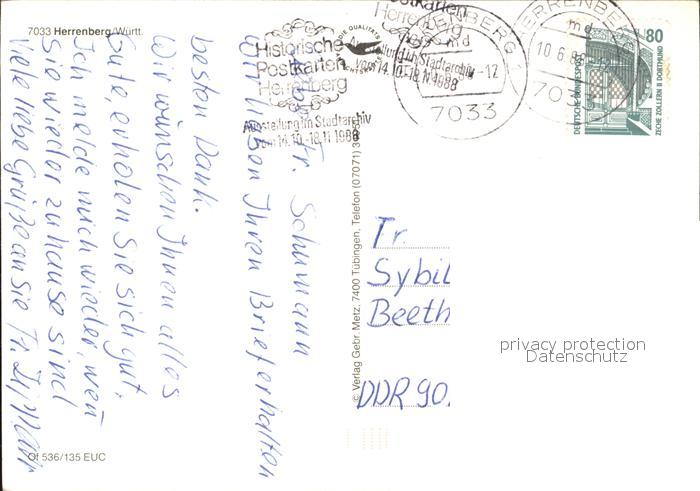 7033 Herrenberg/Württ.
Fr. Schumann
Wir haben Ihren Brief erhalten
besten Dank.
Wir wünschen Ihnen alles
Gute, erholen Sie sich gut.
Ich melde mich wieder, wenn
Sie wieder zuhause sind
Viele liebe Grüße an Sie Fr.
Of 536/135 EUC
© Verlag Gebr. Metz, 7400 Tübingen, Telefon (07071)
Historische
Postkarten
Herrenberg
Ausstellung im Stadtarchiv
vom 14.10.-18.11.1988
Postkarten
Herrenberg
Ausstellung im Stadtarchiv
vom 14.10.-18.11.1988
HERRENBERG 1
md
-12
7033
HERRENBERG
md
10.6.88
80
DEUTSCHE BUNDESPOST
ZECHE ZOLLERN II DORTMUND
Fr.
Sybil
Beeth
DDR 90.
privacy protection
Datenschutz